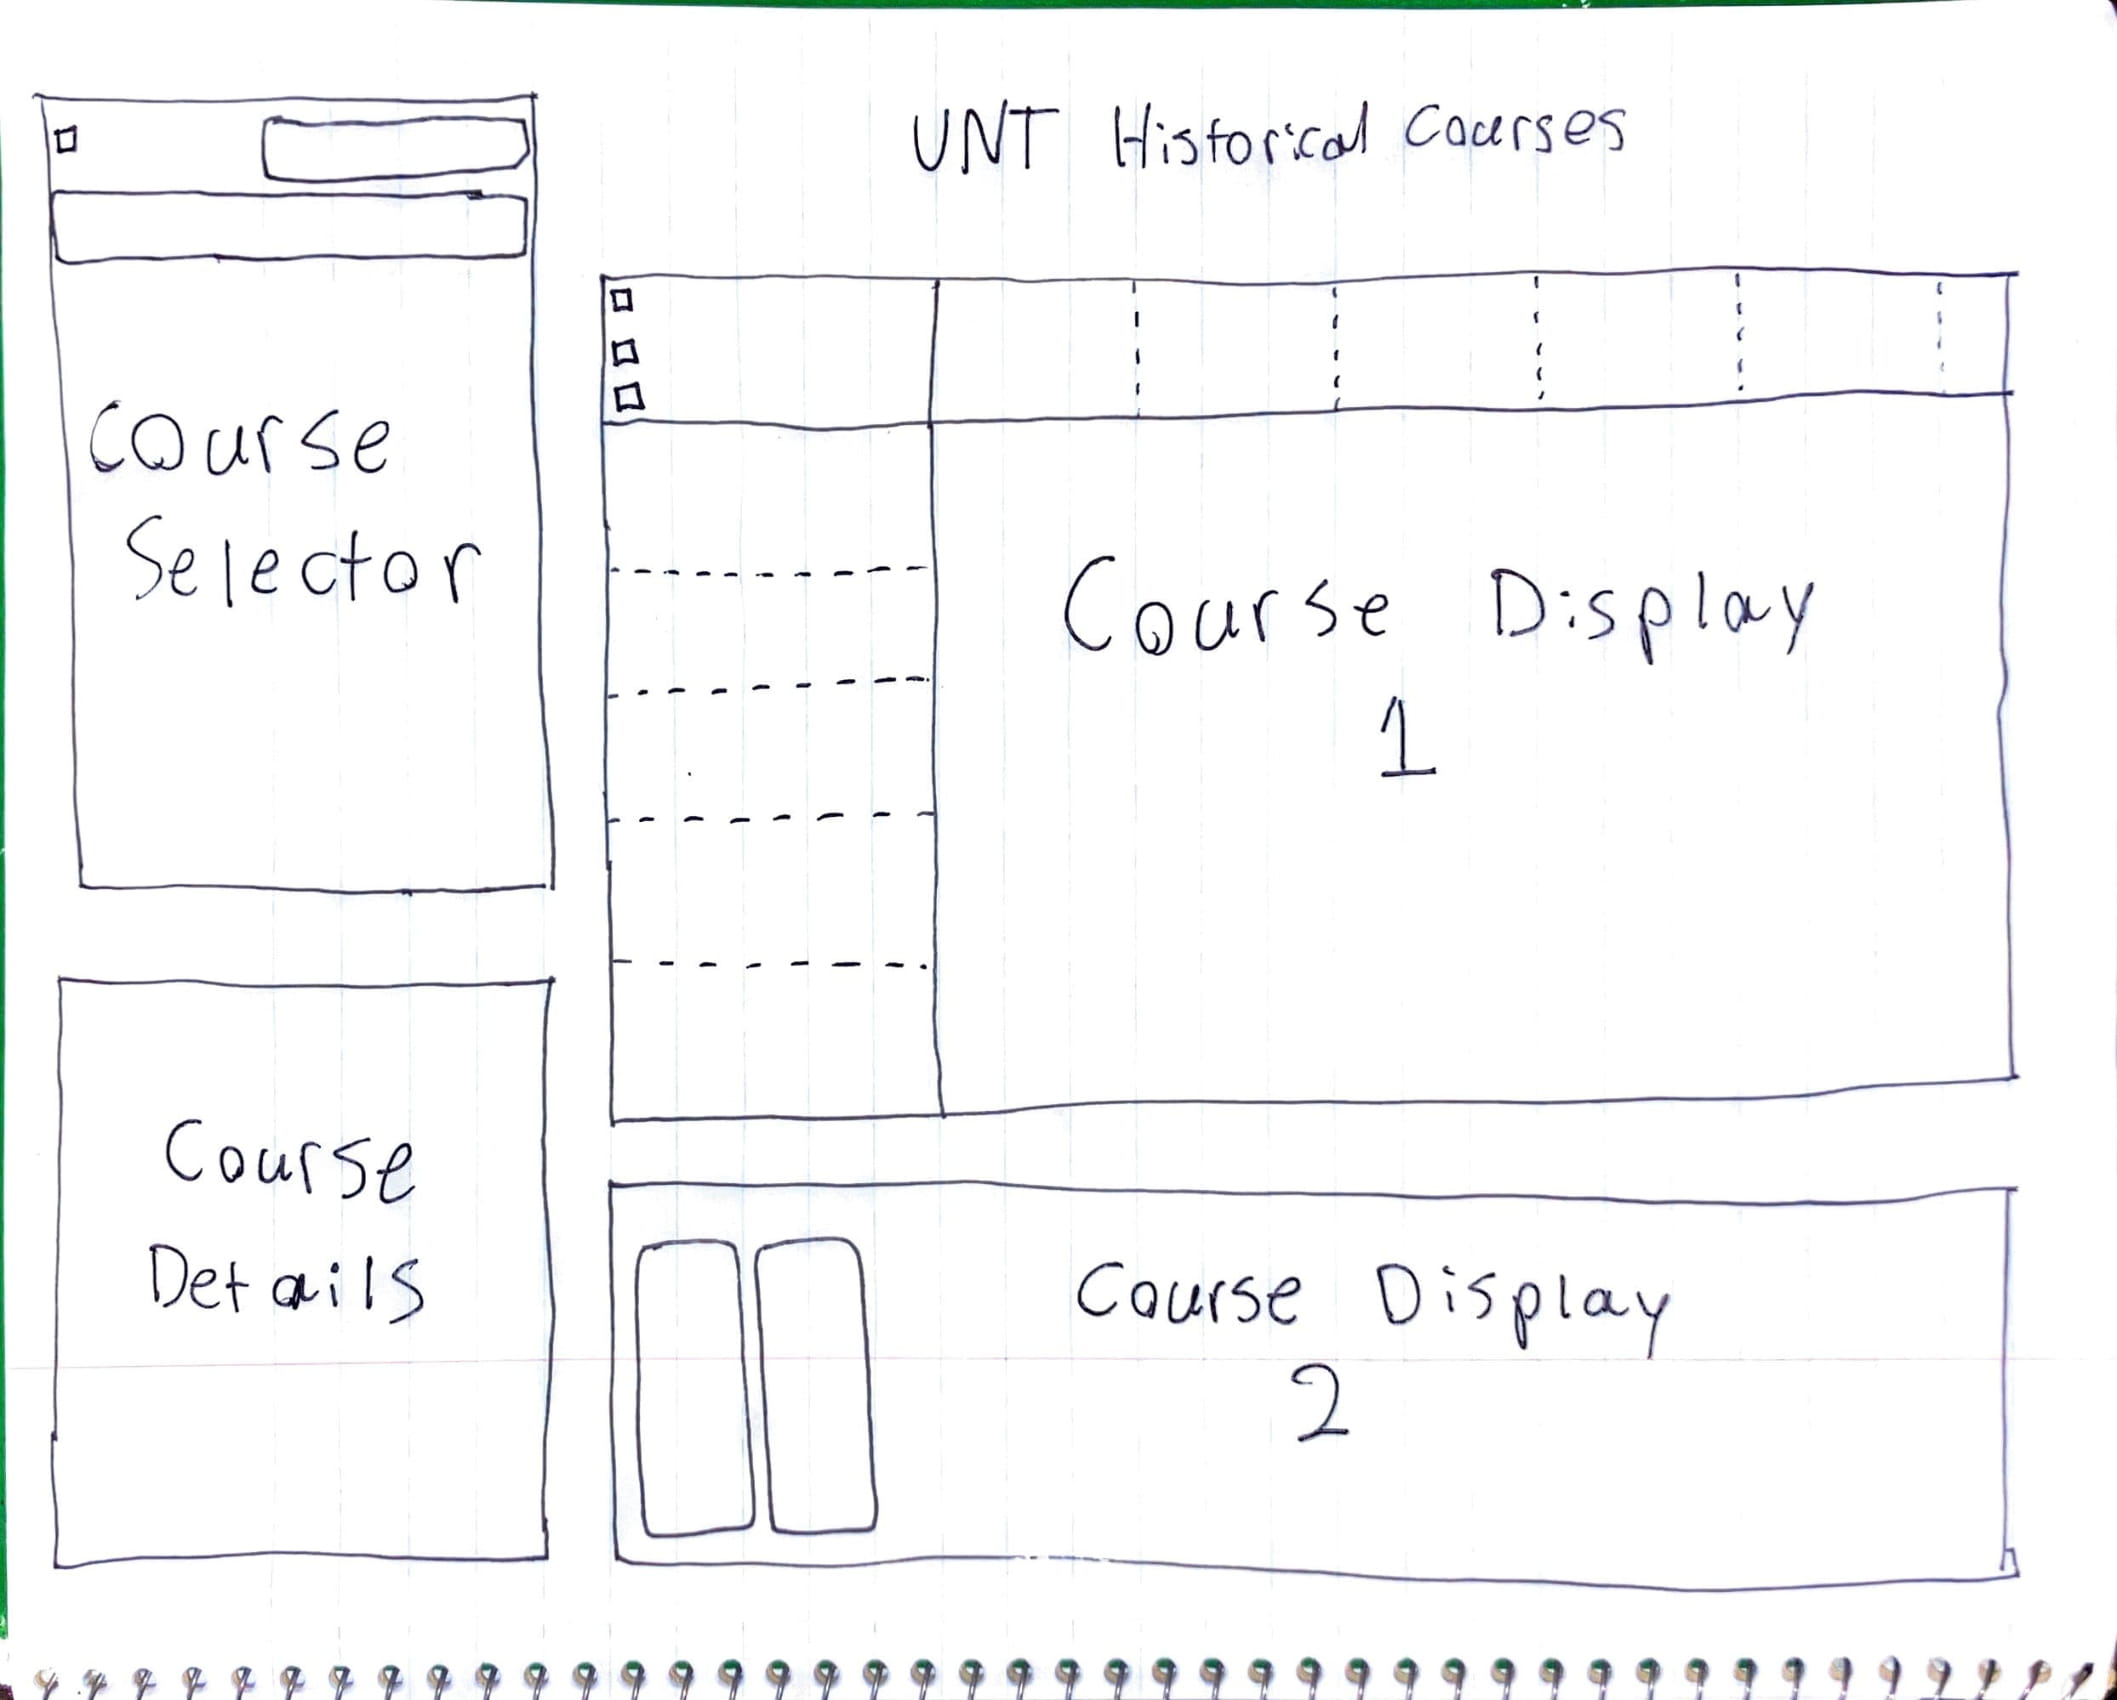 UNT Historical Courses
Course
Selector
Course Display
1
Course
Details
Course Display
2